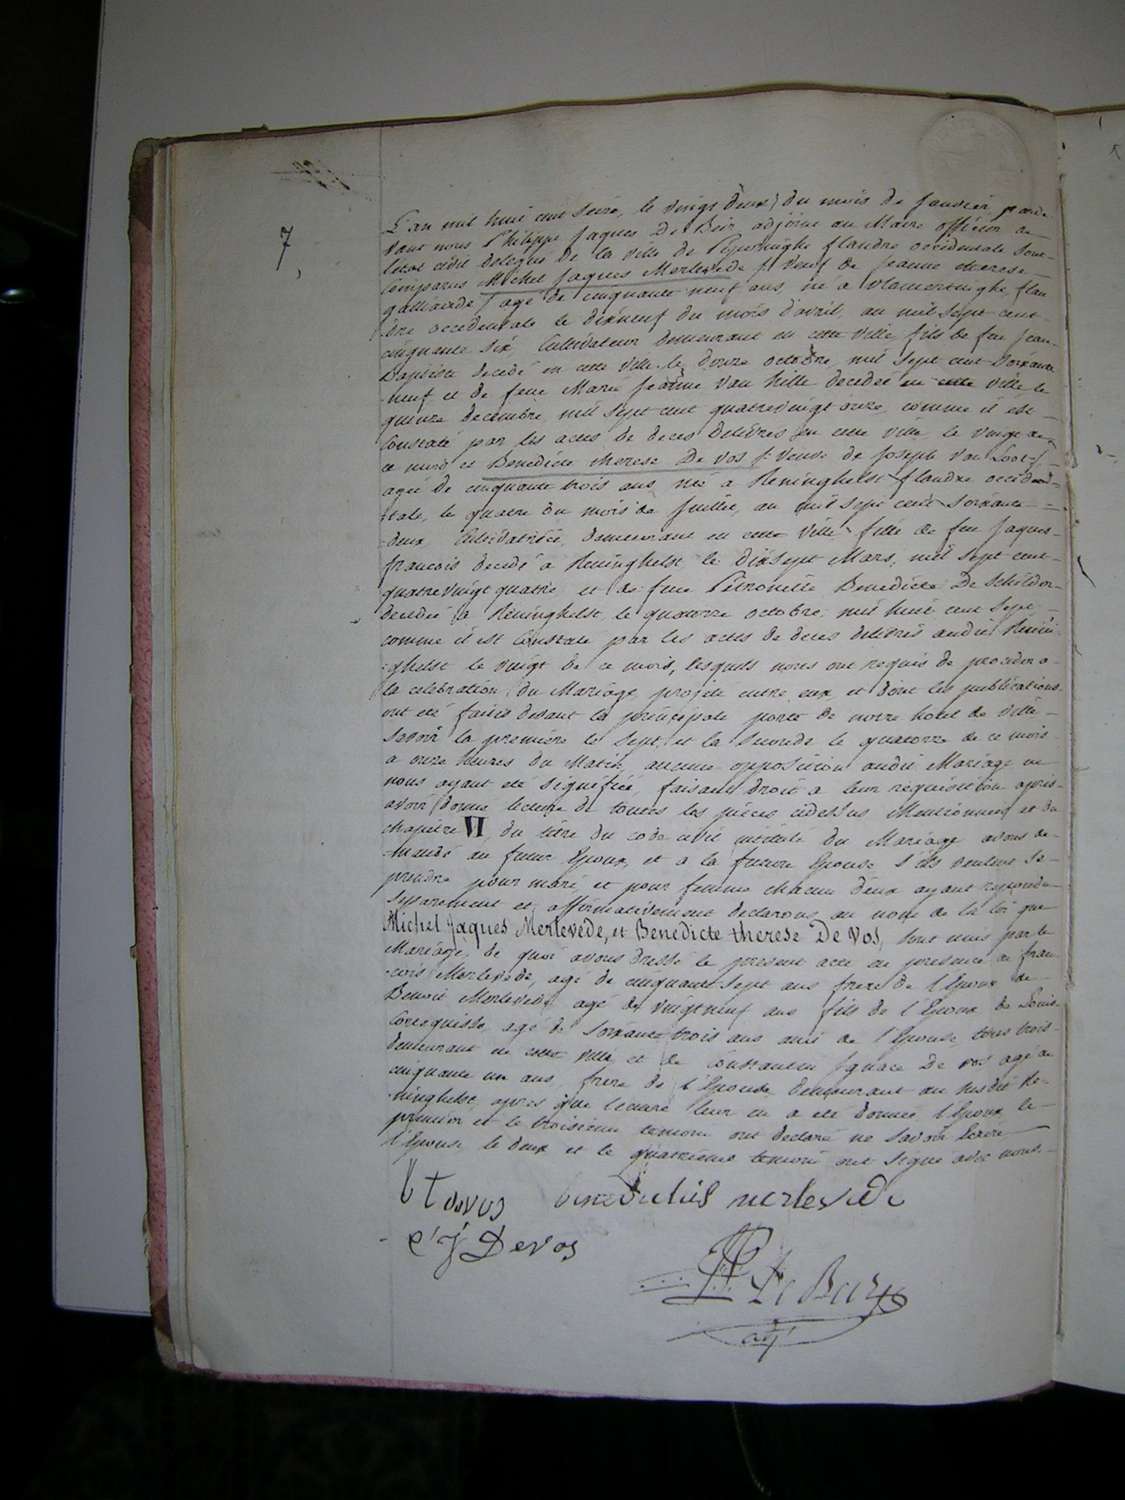 7,
L'an mil huit cent seize, le vingt deux du mois de Janvier parde
vant nous Philippe Jaques De Beir adjoint au Maire officier de
letat civil delegué de la ville de Poperinghe flandre occidentale sont
comparus Michel Jaques Merlevede / Veuf de Jeanne therese
galliaerde / agé de cinquante neuf ans né a vlamertinghe, flan
dre occidentale le dixneuf du mois d'avril, an mil sept cent
cinquante six, Cultivateur demeurant en cette ville fils de feu Jean
Baptiste decedé en cette ville le douze octobre mil sept cent soixante
neuf et de feue Marie Jeanne Van hille decedée en cette ville le
quinze decembre mil sept cent quatrevingt onze, comme il est
Constaté par les actes de deces delivrés en cette ville le vingt de
ce mois et Benedicte therese De vos / Veuve de Joseph Van Loo /
agée de cinquante trois ans née a Reninghelst flandre occiden-
tale, le quatre du mois de Juillet, an mil sept cent soixante
deux Cultivatrice, demeurant en cette ville fille de feu Jaques
francois decedé a Reninghelst le dixsept Mars, mil sept cent
quatrevingt quatre et de feue Petronille Benedicte De Schilder
decedée a Reninghelst le quatorze octobre mil huit cent sept
comme il est Constaté par les actes de deces delivrés audit Renin
ghelst le vingt de ce mois, lesquels nous ont requis de proceder a
la celebration du Mariage projeté entre eux et dont les publications
ont eté faites devant la principale porte de notre hotel de ville
savoir la premiere le sept et la seconde le quatorze de ce mois
a onze heures du Matin, aucune opposition audit Mariage ne
nous ayant eté signifiée, faisant droit a leur requisition apres
avoir donné lecture de toutes les pieces cidessus Mentionnées et du
chapitre VI du titre du code civil intitulé du Mariage avons de
mandé au futur Epoux et a la future Epouse s'ils veulent se
prendre pour mari et pour femme chacun d'eux ayant repondu
separement et affirmativement declarons au nom de la loi que
Michel Jaques Merlevede, et Benedicte therese De Vos, sont unis par le
Mariage, de quoi avons dressé le present acte en presence de fran
cois Merlevede, agé de cinquante sept ans frere de l'Epoux de
Benoit Merlevede agé de vingtneuf ans fils de l'Epoux de Louis
agé de soixante trois ans ami de l'Epouse, tous trois
demeurant en cette ville et de Constantin Ignace De vos agé de
cinquante un ans, frere de l'Epouse demeurant au susdit Re-
ninghelst, apres que lecture leur en a eté donnée l'Epoux le
premier et le troisieme temoin ont declaré ne savoir Ecrire
l'Epouse le deux et le quatrieme temoin ont signé avec nous.
b t devos benedictus merlevede
C J Devos
PJ De Beir
adj